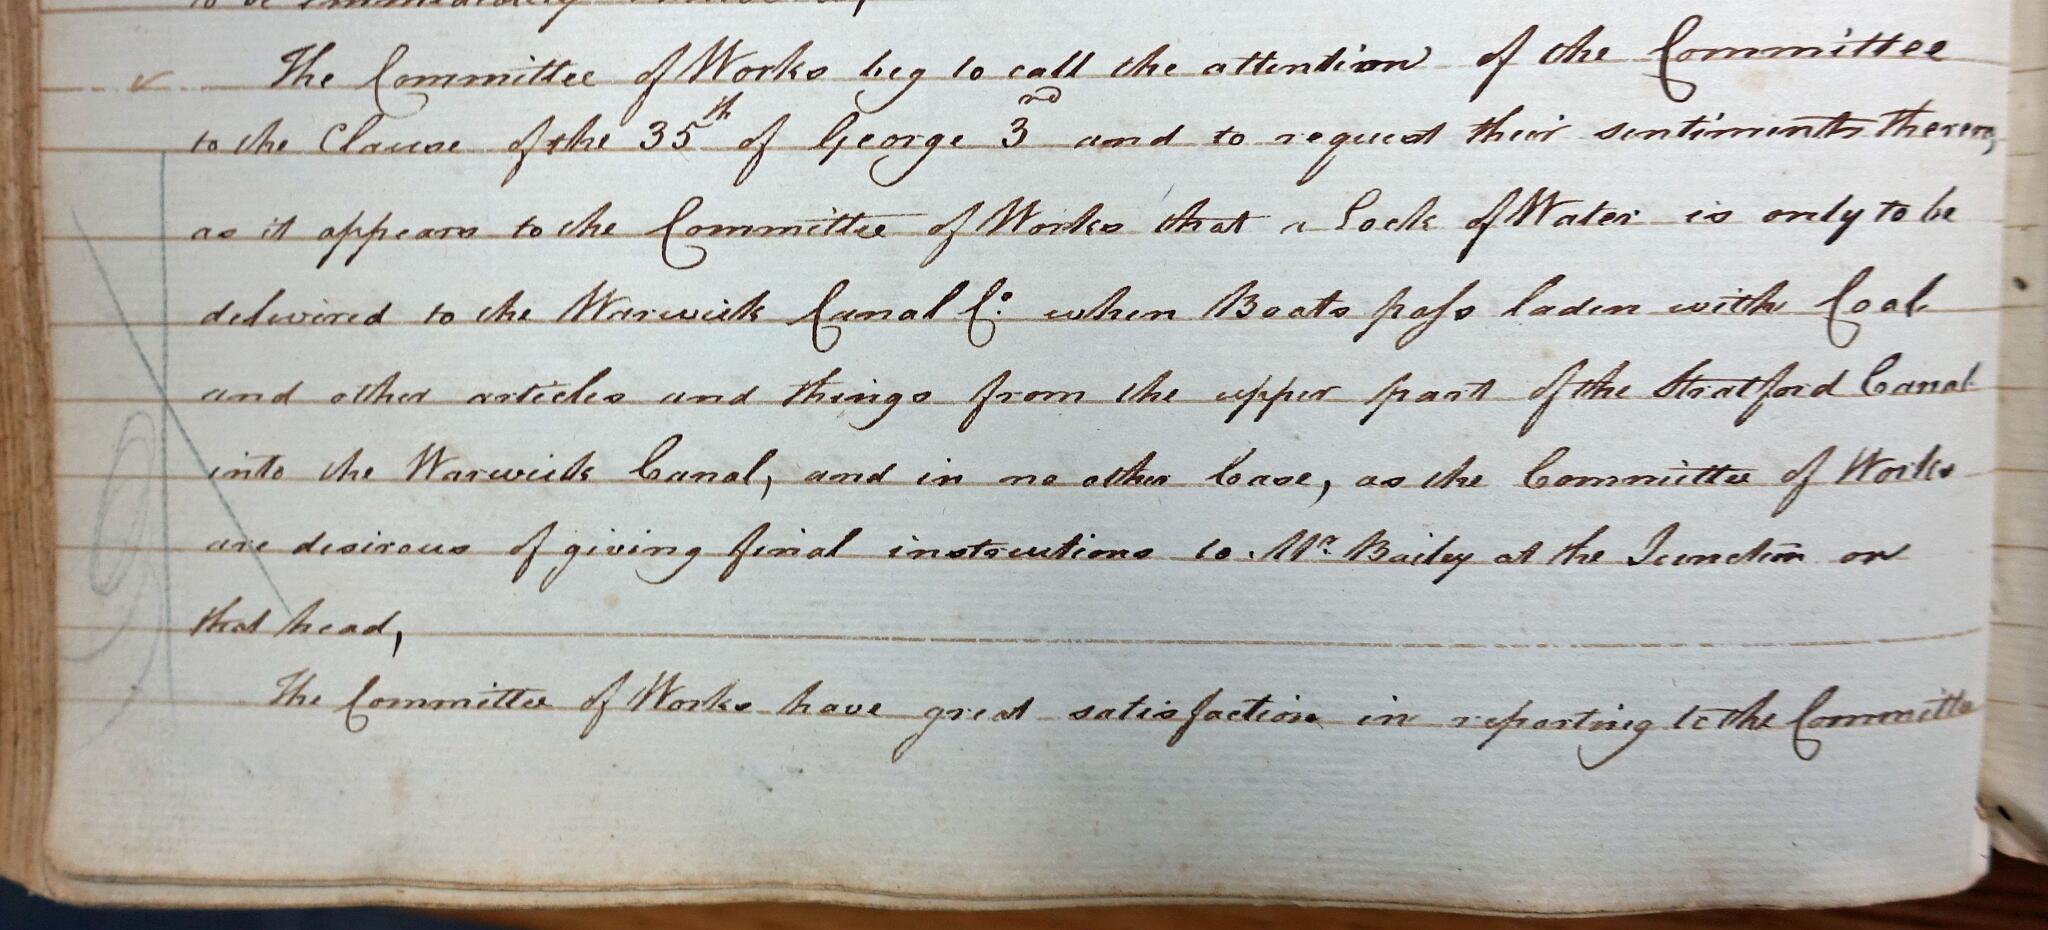 to be immediately
The Committee of Works beg to call the attention of the Committee
to the Clause of the 35th of George 3rd and to request their sentiments thereon,
as it appears to the Committee of Works that a Lock of Water is only to be
delivered to the Warwick Canal Co. when Boats pass laden with Coal
and other articles and things from the upper part of the Stratford Canal
into the Warwick Canal, and in no other Case, as the Committee of Works
are desirous of giving final instructions to Mr. Bailey at the Junction on
that head,
The Committee of Works have great satisfaction in reporting to the Committee